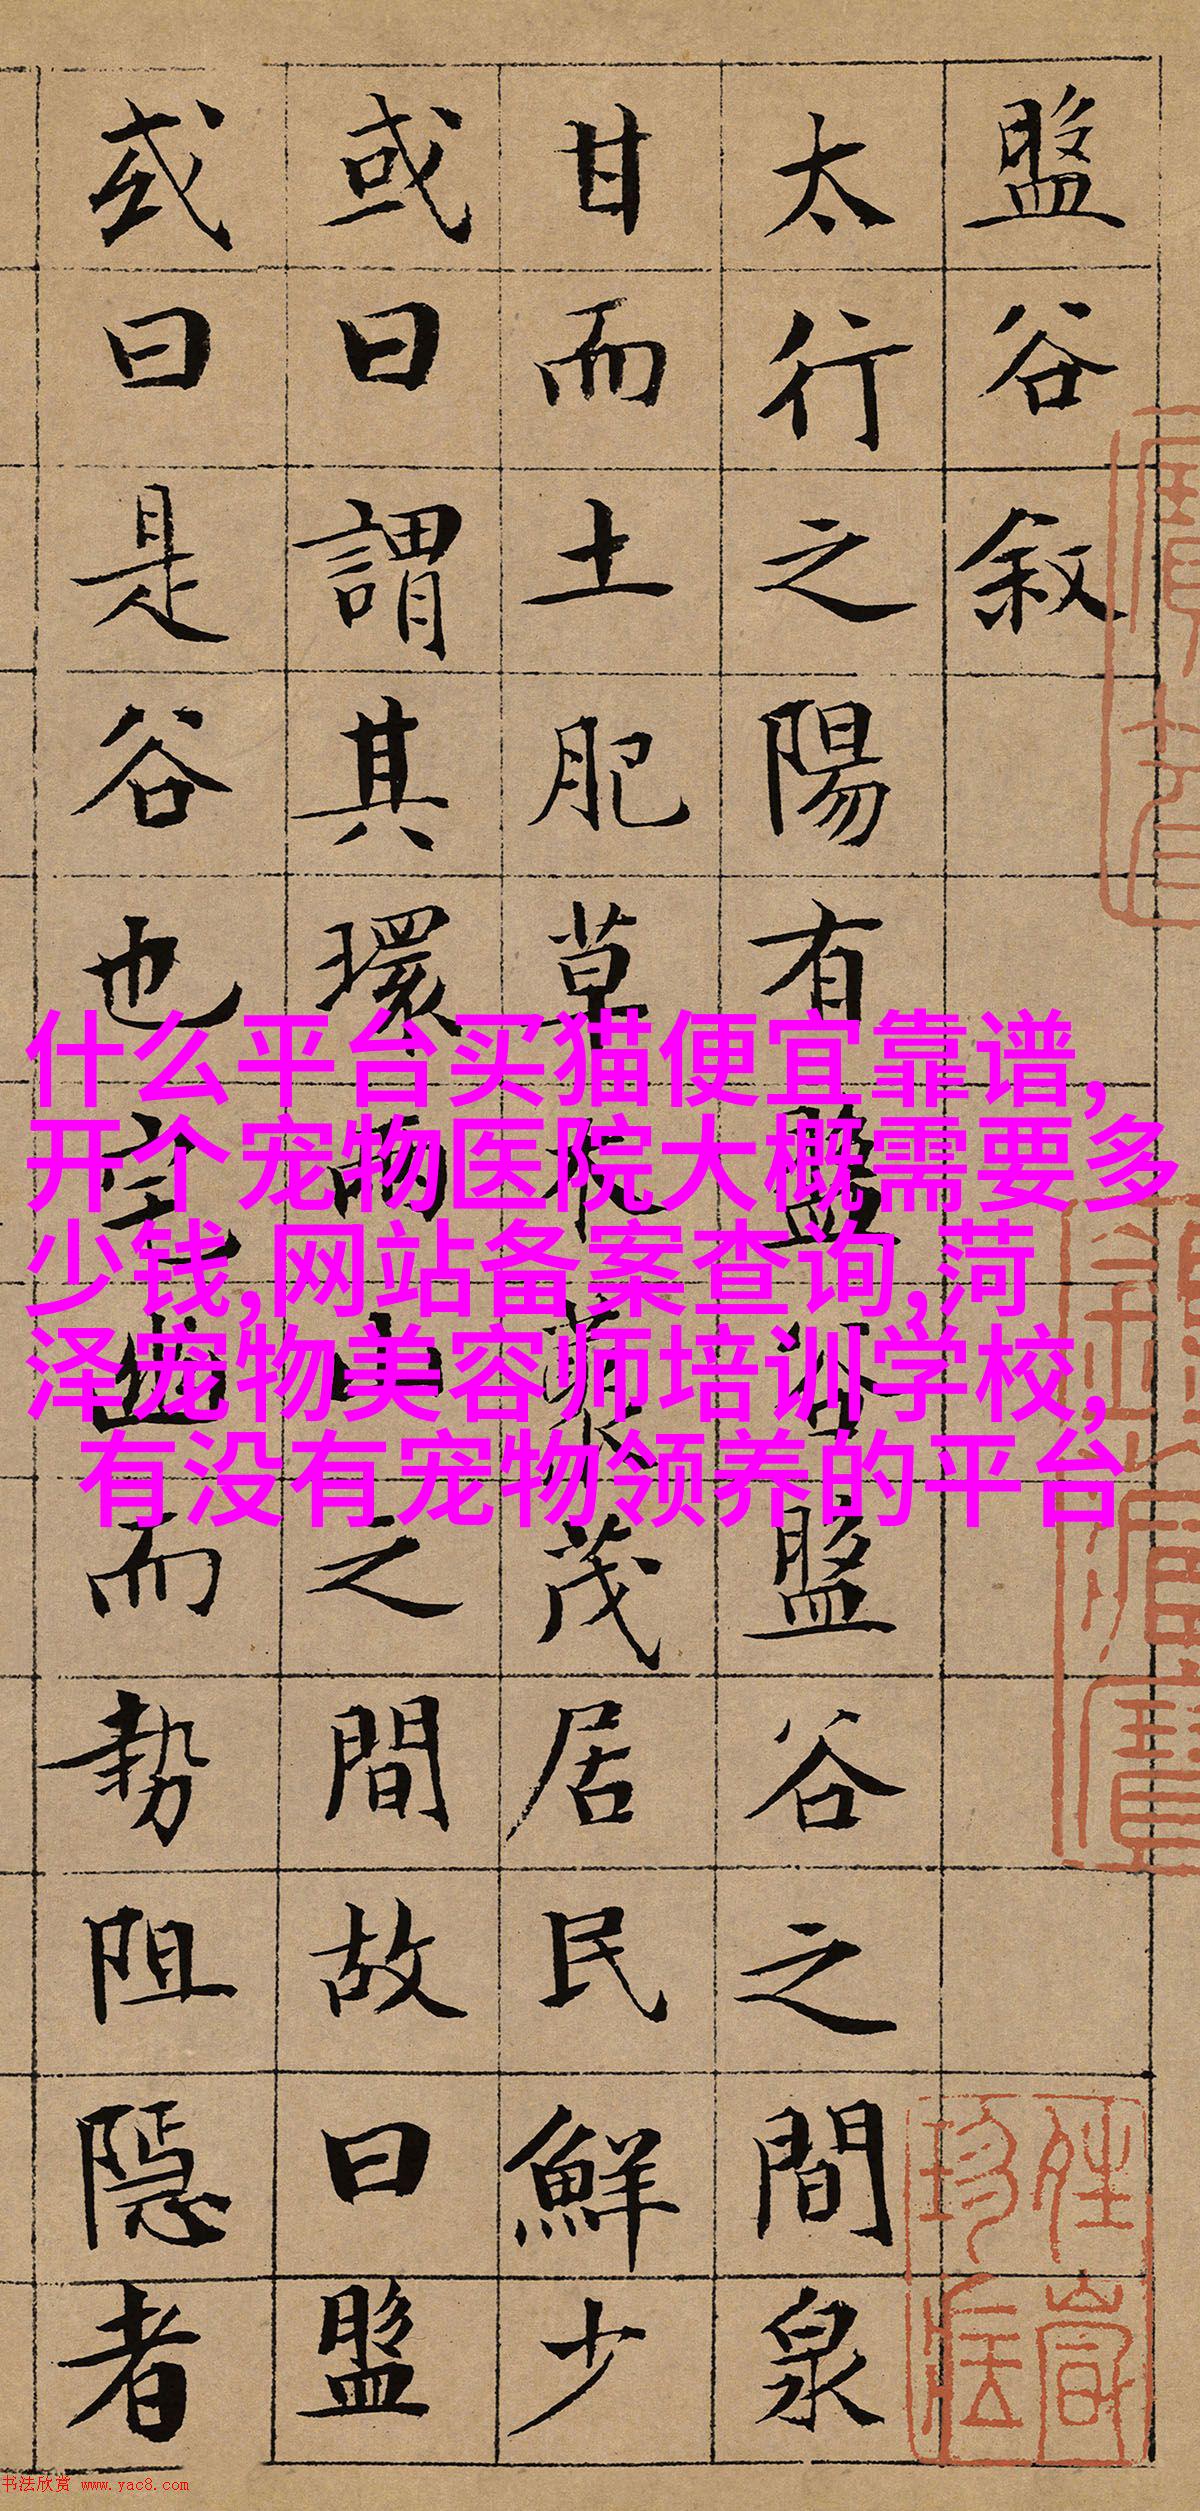 盤谷敘
太行之陽有盤谷盤谷之間泉
甘而土肥草木藂茂居民鮮少
或曰謂其環兩山之間故曰盤
或曰是谷也宅幽而勢阻隱者
什么平台买猫便宜靠谱,
开个宠物医院大概需要多
少钱,网站备案查询,菏
泽宠物美容师培训学校,
有没有宠物领养的平台
书法欣赏 www.yac8.com